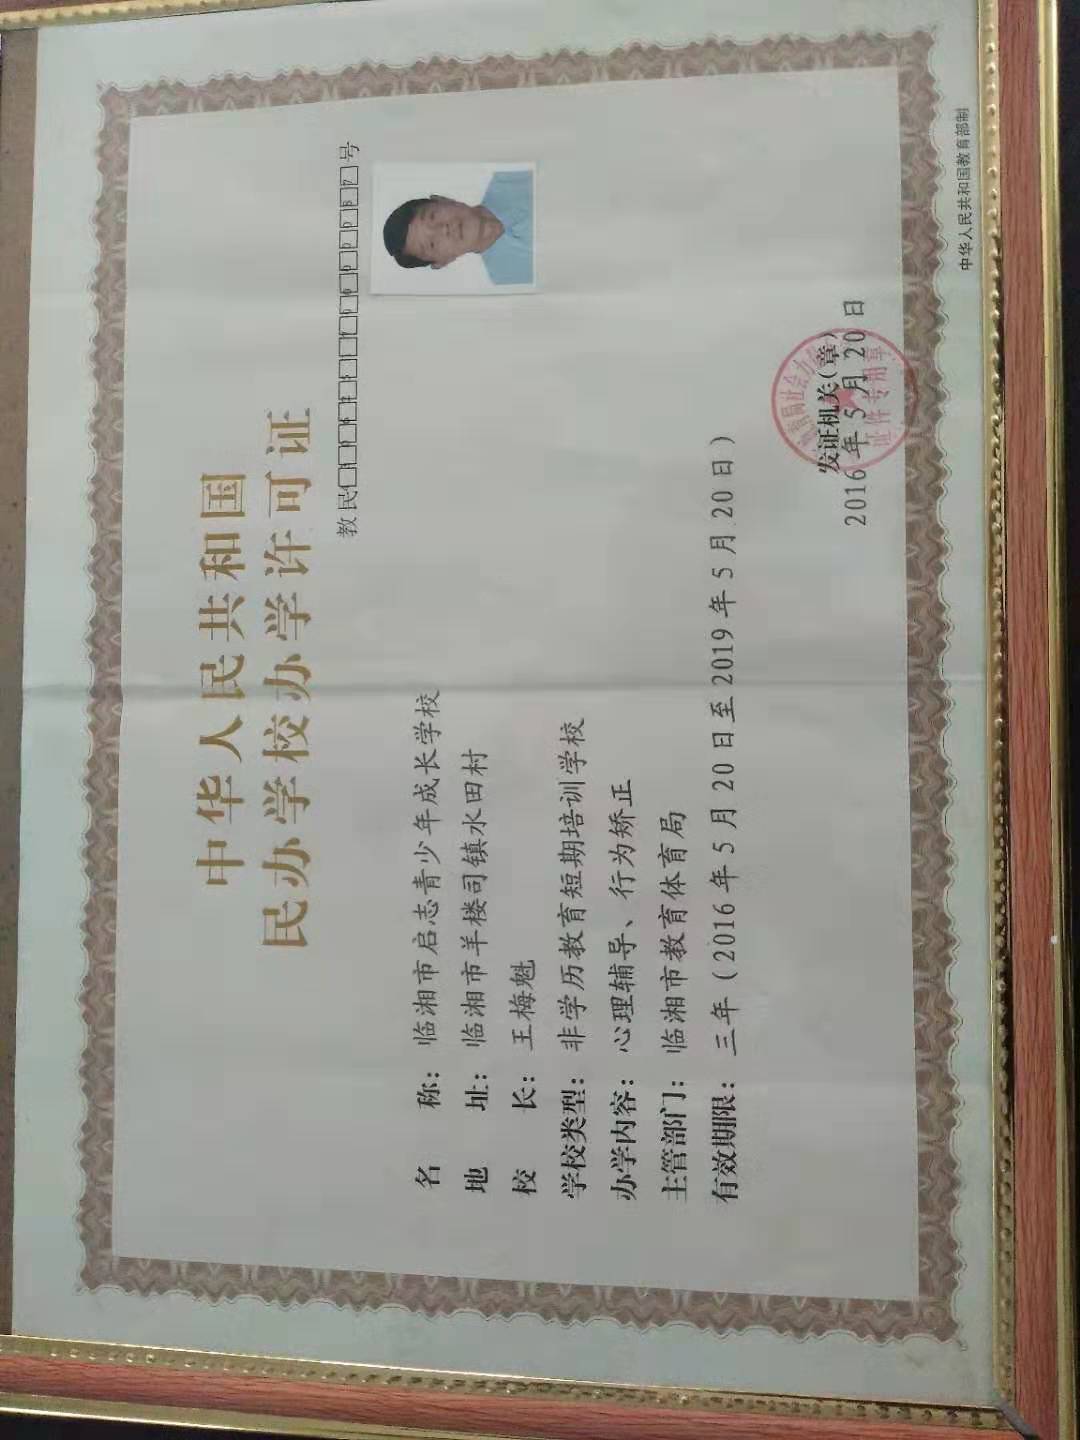 中华人民共和国
民办学校办学许可证
教民 号
名 称：临湘市启志青少年成长学校
地 址：临湘市羊楼司镇水田村
校 长：王梅魁
学校类型：非学历教育短期培训学校
办学内容：心理辅导、行为矫正
主管部门：临湘市教育体育局
有效期限：三年（2016年5月20日至2019年5月20日）
发证机关（章）
2016年5月20日
证件专用章
中华人民共和国教育部制